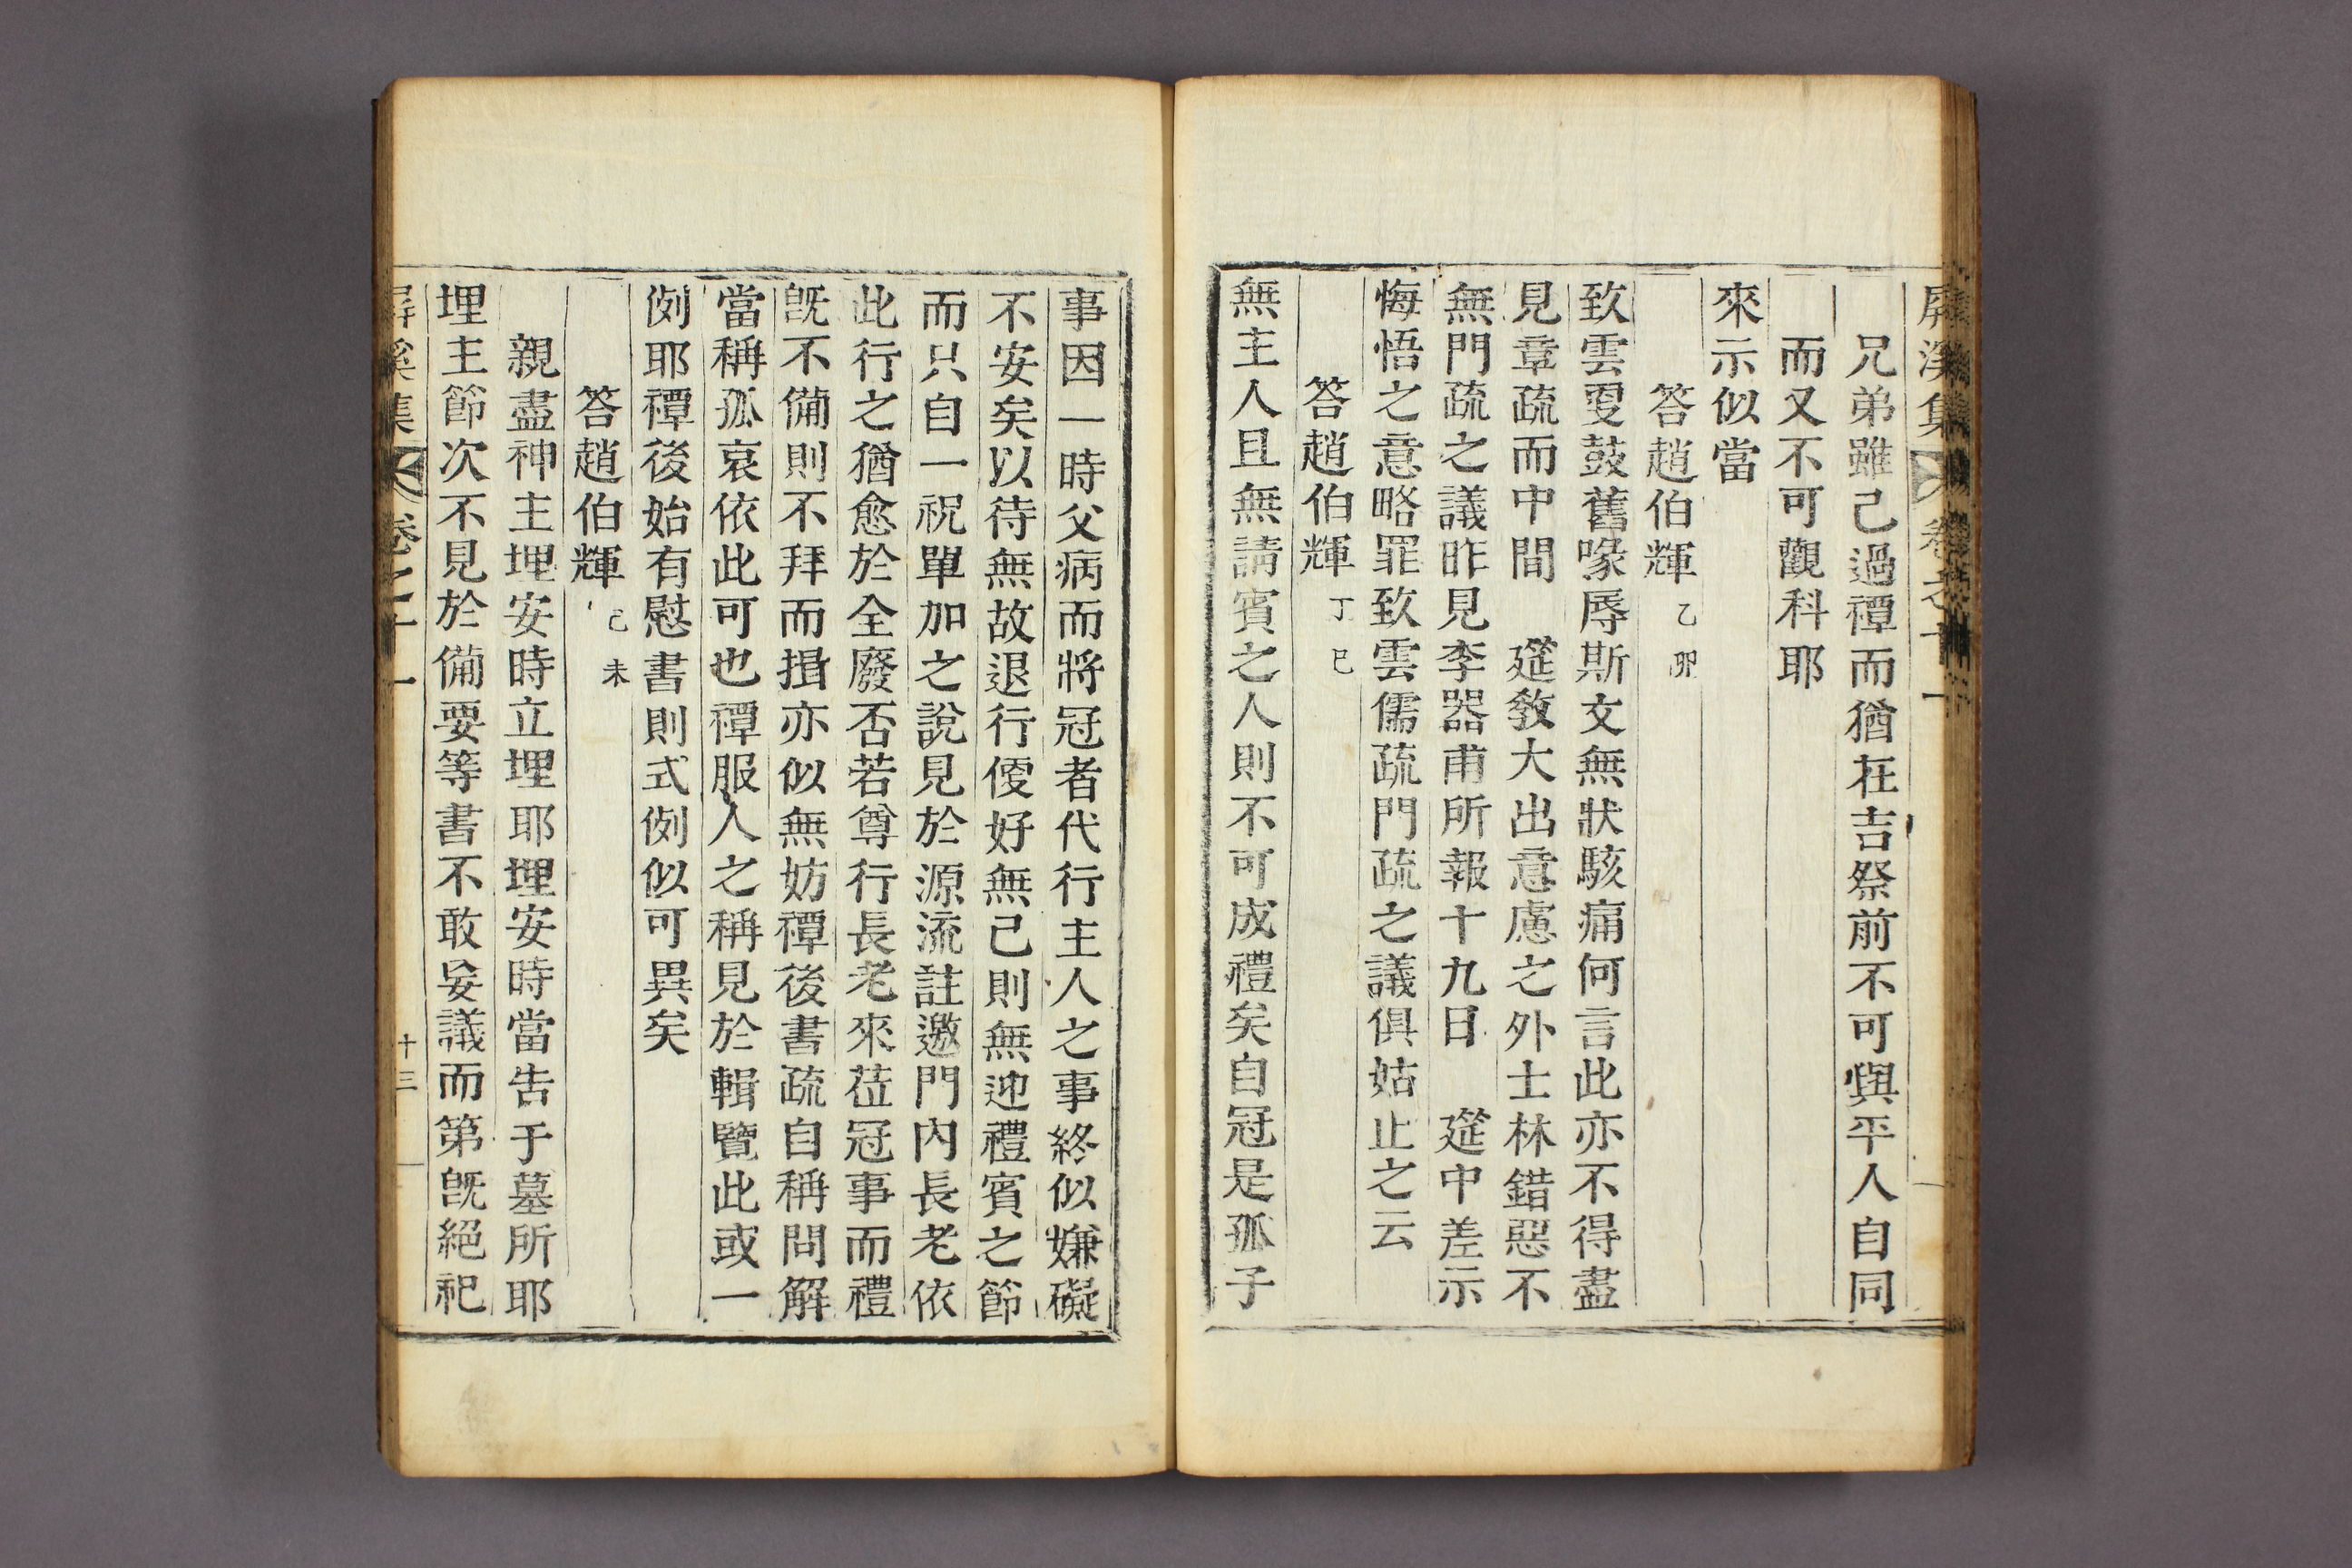 屛溪集 卷之十一
兄弟雖已過禫而猶在吉祭前不可與平人自同
而又不可觀科耶
來示似當
答趙伯輝 乙卯
致雲雯鼓舊喙辱斯文無狀駭痛何言此亦不得盡
見章疏而中間 筵敎大出意慮之外士林錯惡不
無門疏之議昨見李器甫所報十九日 筵中差示
悔悟之意略罪致雲儒疏門疏之議俱姑止之云
答趙伯輝 丁巳
無主人且無請賓之人則不可成禮矣自冠是孤子
事因一時父病而將冠者代行主人之事終似嫌礙
不安矣以待無故退行便好無已則無迎禮賓之節
而只自一祝單加之說見於源流註邀門內長老依
此行之猶愈於全廢否若尊行長老來莅冠事而禮
旣不備則不拜而揖亦似無妨禫後書疏自稱問解
當稱孤哀依此可也禫服人之稱見於輯覽此或一
例耶禫後始有慰書則式例似可異矣
答趙伯輝 己未
親盡神主埋安時立埋耶埋安時當告于墓所耶
埋主節次不見於備要等書不敢妄議而第旣絕祀
屛溪集 卷之十一 十三